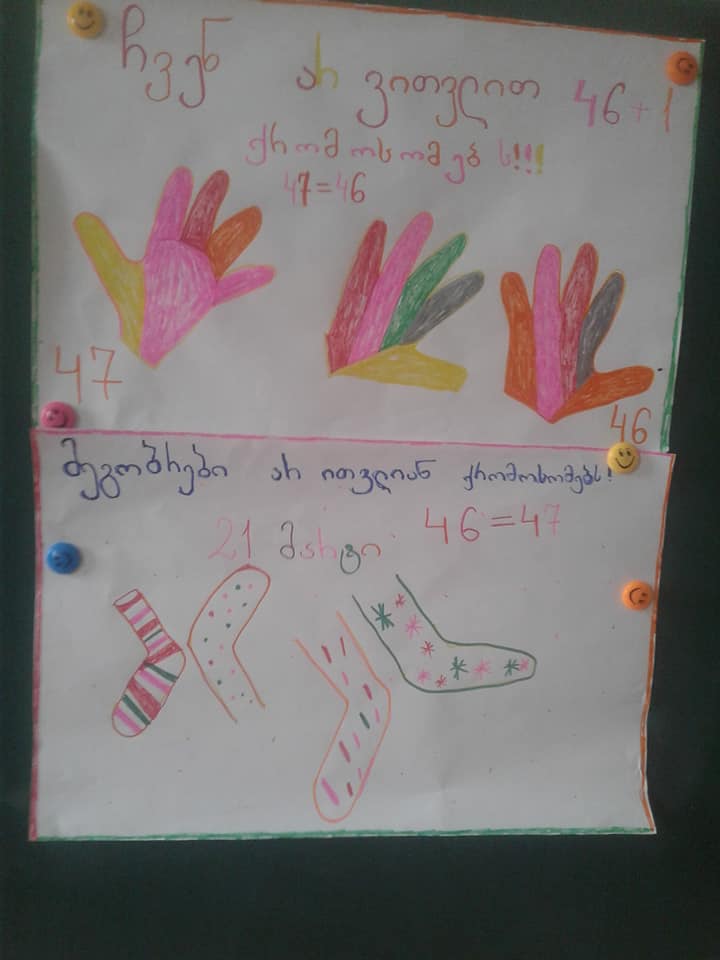 ჩვენ არ ვითვლით 46+1
ქრომოსომებს!!!
47=46
47
46
მეგობრები არ ითვლიან ქრომოსომებს!
46=47
21 მარტი